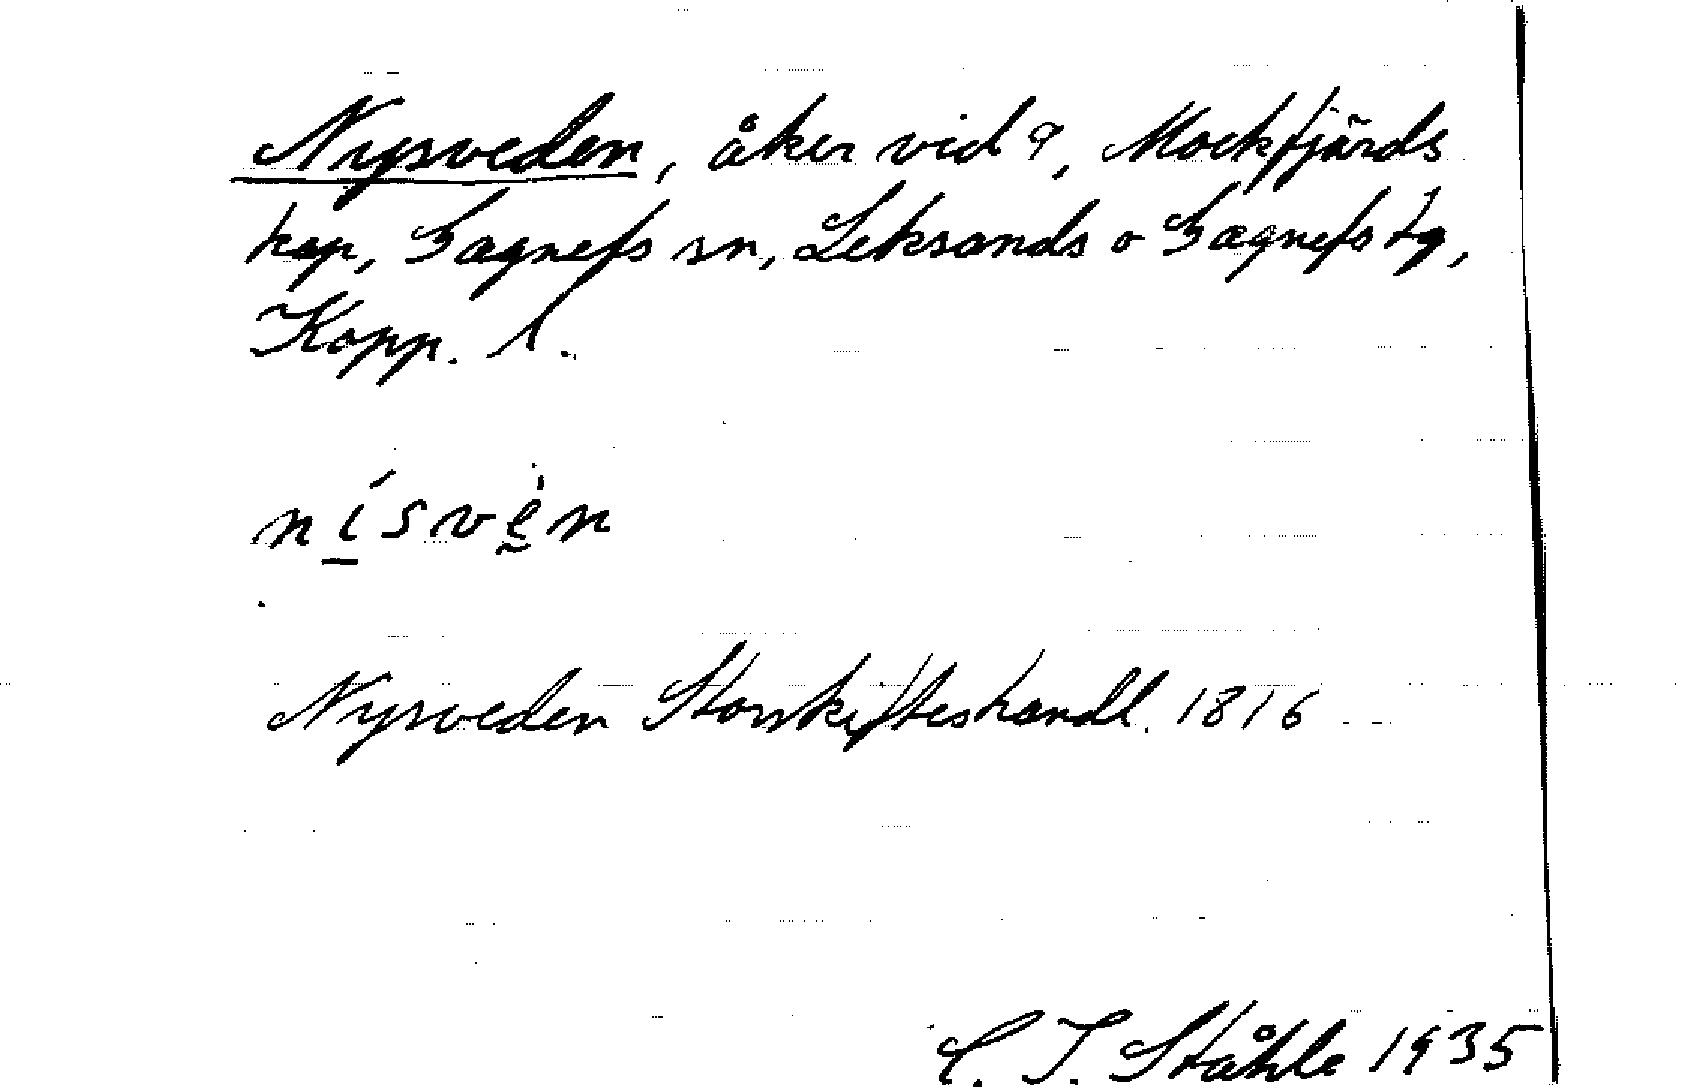 Nysveden, åker vid ?, Mockfjärds
kap, Gagnefs sn, Leksands o Gagnefs tg,
Kopp. l.
nísvèn
Nysveden Storskifteshandl. 1816
C. I. Ståhle 1935